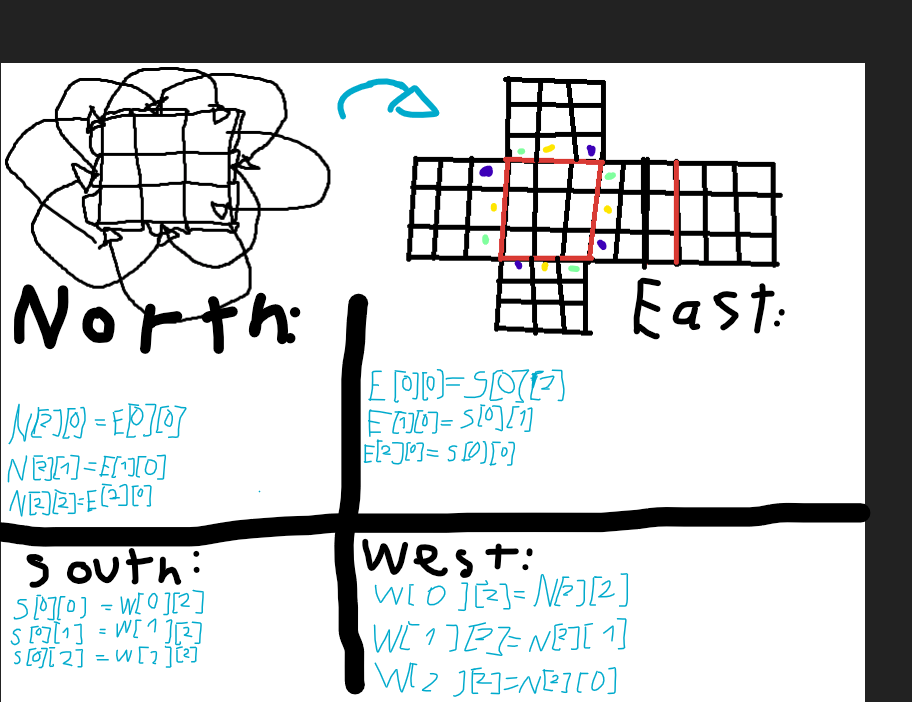 North:
East:
N[2][0] = E[0][0]
N[2][1] = E[1][0]
N[2][2] = E[2][0]
E[0][0] = S[0][2]
E[1][0] = S[0][1]
E[2][0] = S[0][0]
South:
S[0][0] = W[0][2]
S[0][1] = W[1][2]
S[0][2] = W[2][2]
West:
W[0][2] = N[2][2]
W[1][2] = N[2][1]
W[2][2] = N[2][0]